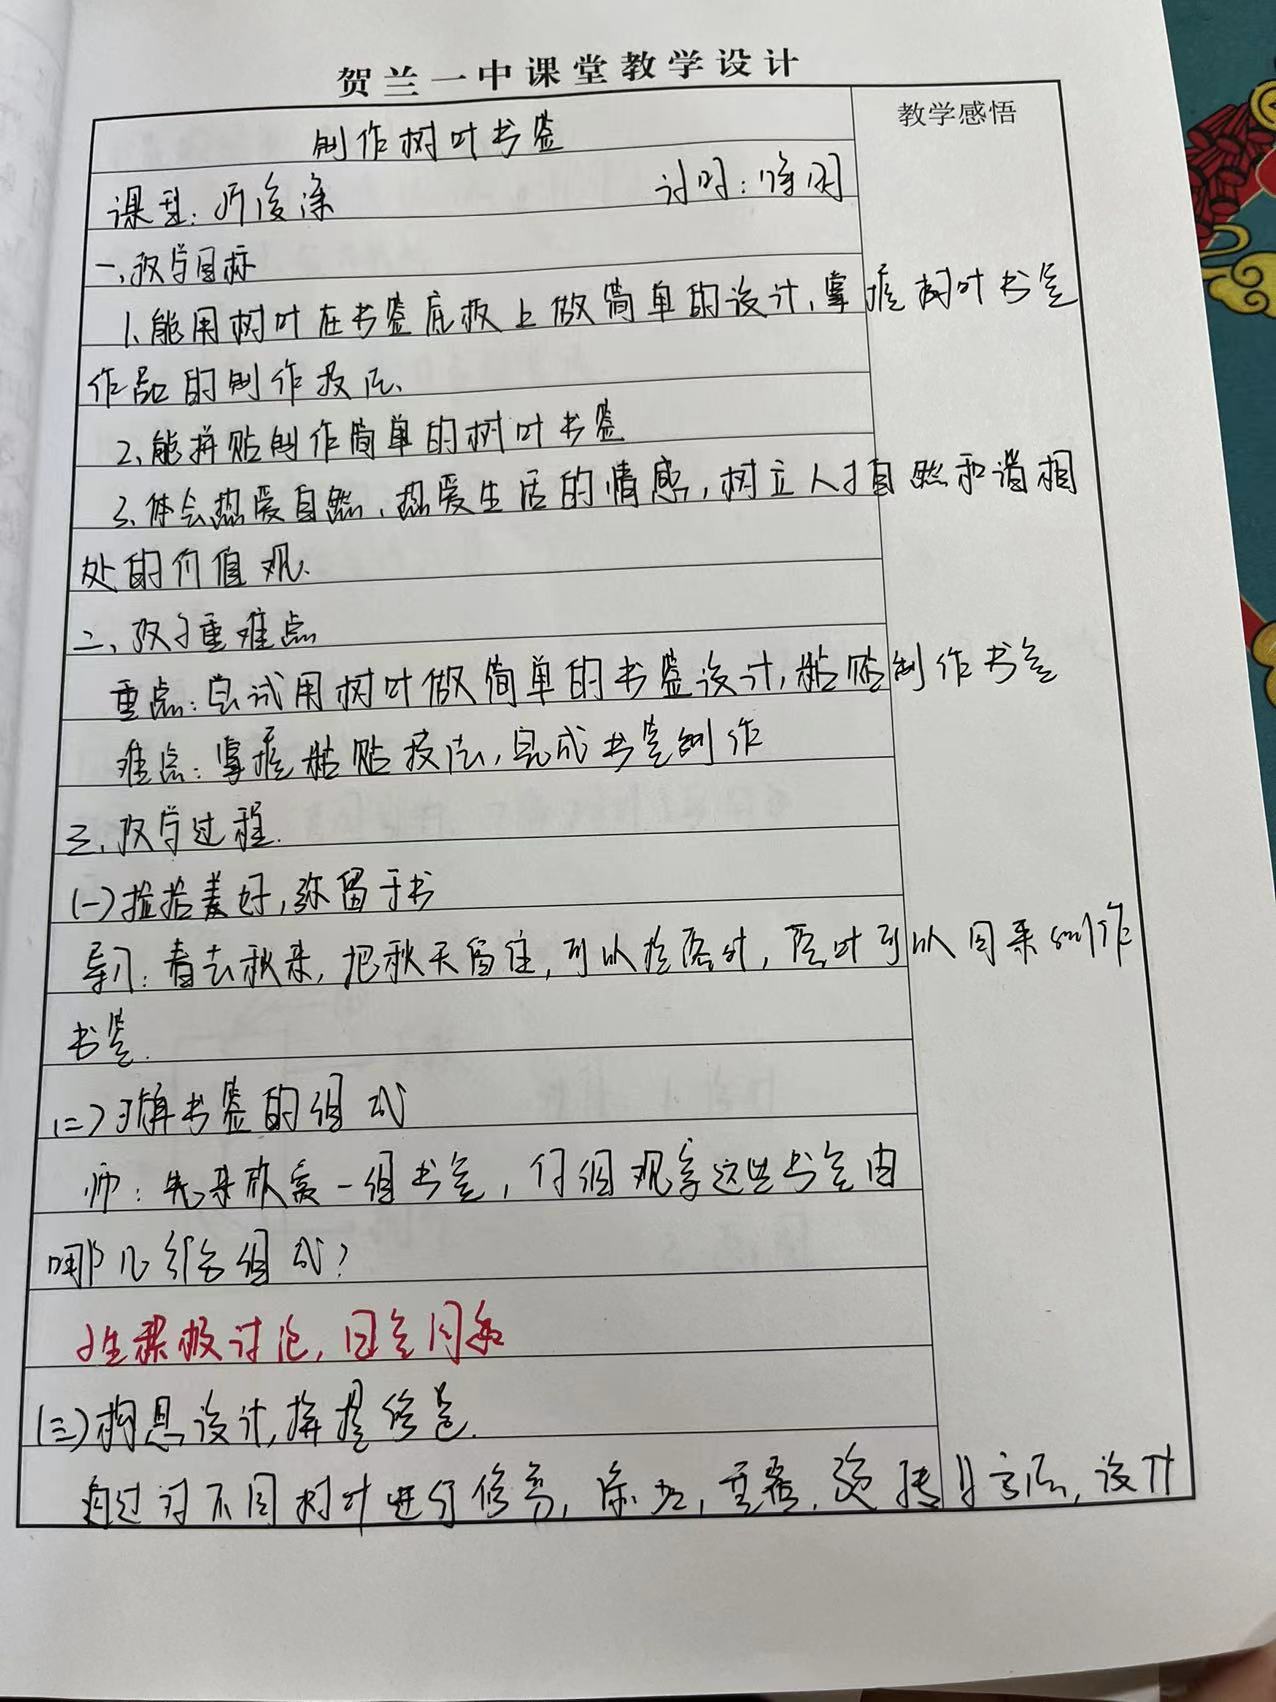 贺兰一中课堂教学设计
教学感悟
制作树叶书签
课型: 所度课
课时: 1课时
一、教学目标
1、能用树叶在书签底板上做简单的设计,掌握树叶书签
作品的制作技法、
2、能拼贴制作简单的树叶书签
3、体会热爱自然、热爱生活的情感,树立人与自然和谐相
处的价值观、
二、教学重难点
重点:尝试用树叶做简单的书签设计,粘贴制作书签
难点:掌握粘贴技法,完成书签制作
三、教学过程.
(一)捡拾美好,弥留于书
导入:春去秋来,把秋天留住,可以捡落叶,落叶可以用来制作
书签.
(二)了解书签的组成
师:先来欣赏一组书签,仔细观察这些书签由
哪几部分组成?
学生积极讨论,回答问题
(三)构思设计,拼摆
通过对不同树叶进行修剪,添加,重叠,旋转等方法,设计